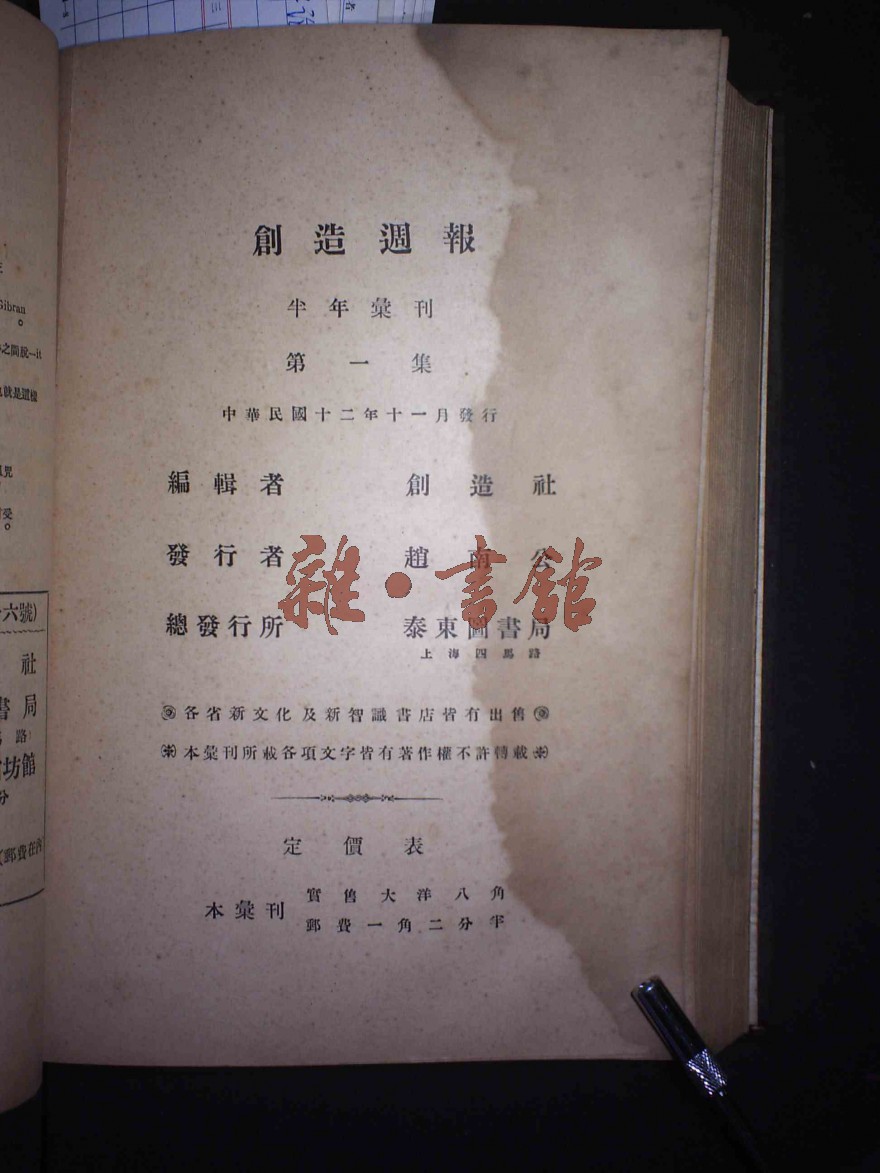 創造週報
半年彙刊
第一集
中華民國十二年十一月發行
編輯者 創造社
發行者 趙南公
總發行所 泰東圖書局
上海四馬路
各省新文化及新智識書店皆有出售
本彙刊所載各項文字皆有著作權不許轉載
定價表
本彙刊
實售大洋八角
郵費一角二分半
雜·書館
Gibran
。
之間脫一it
就是這樣
咒
受
。
六號)
社
書局
路
坊館
分
(郵費在內